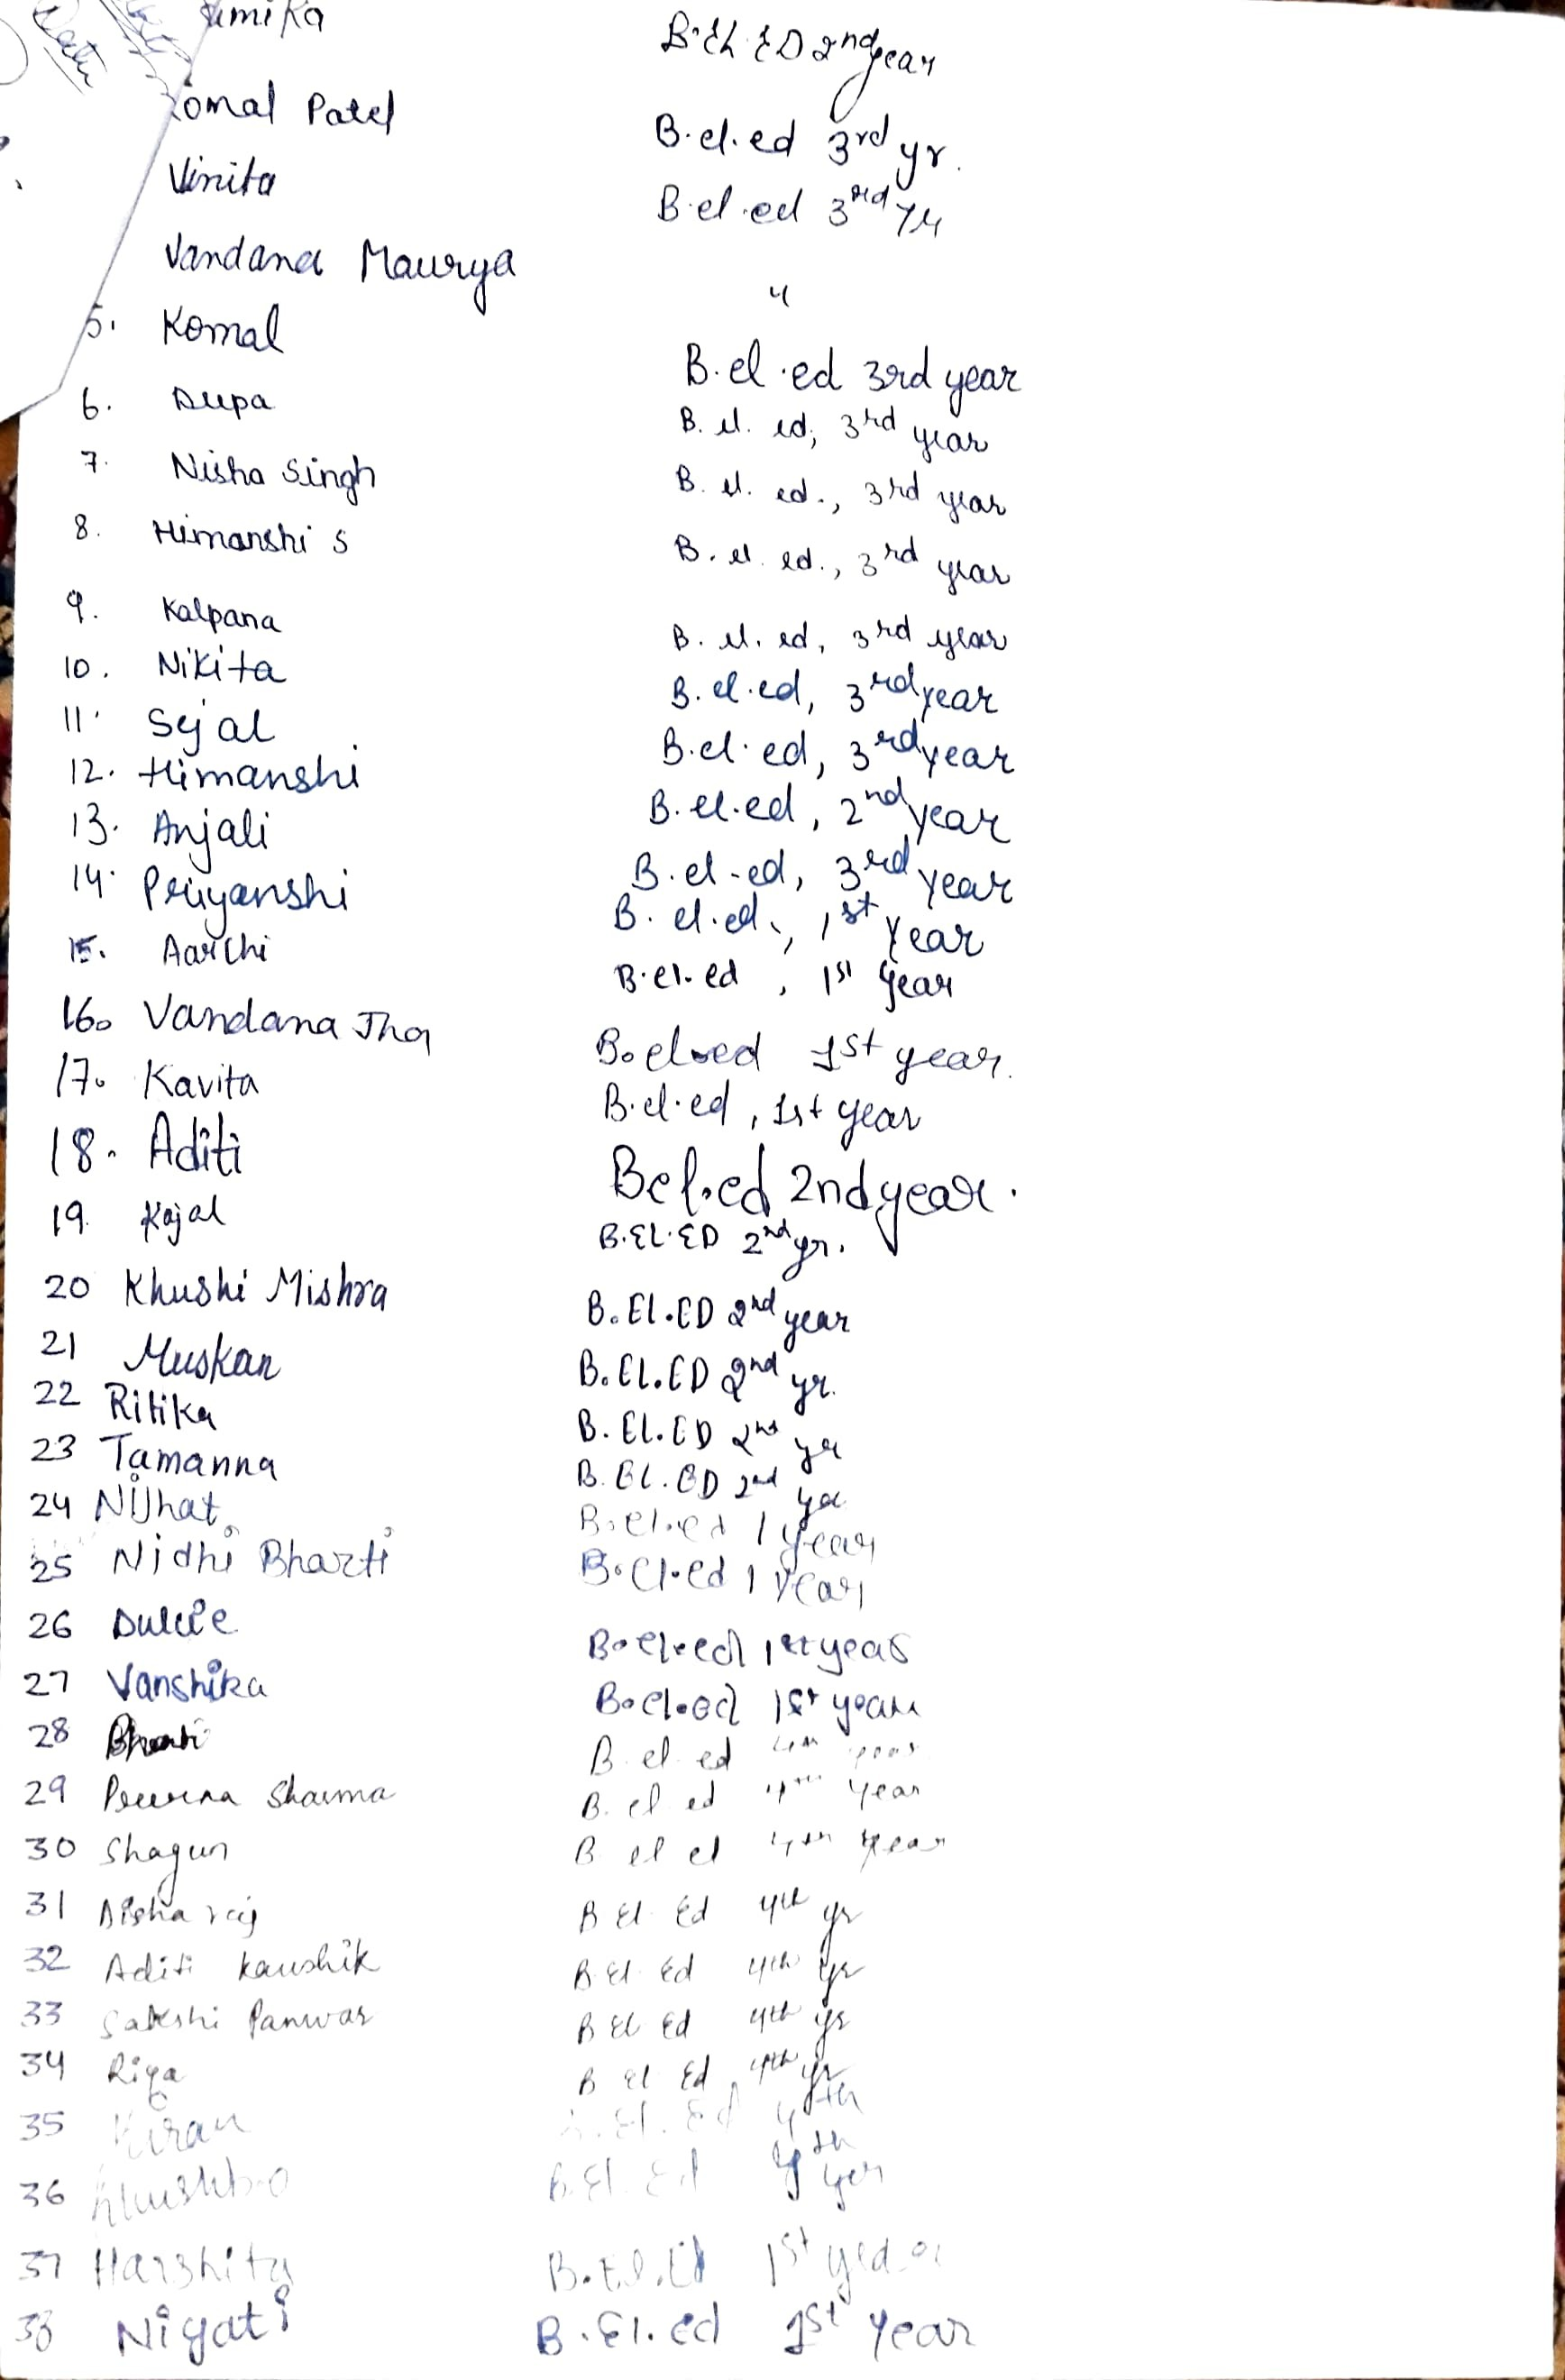 B.El.ED 2nd year
Komal Patel B.el.ed 3rd yr.
Vinita B.el.ed 3rd yr
Vandana Maurya "
5. Komal B.el.ed 3rd year
6. Deepa B.el.ed, 3rd year
7. Nisha Singh B.el.ed., 3rd year
8. Himanshi S B.el.ed., 3rd year
9. Kalpana B.el.ed, 3rd year
10. Nikita B.el.ed, 3rd year
11. Sejal B.el.ed, 3rd year
12. Himanshi B.el.ed, 2nd year
13. Anjali B.el-ed, 3rd year
14. Priyanshi B.el.ed., 1st Year
15. Aarchi B.el.ed, 1st Year
16. Vandana Jha B.el.ed 1st year.
17. Kavita B.el.ed, 1st year
18. Aditi Bel.ed 2nd year.
19. Kajal B.EL.ED 2nd yr.
20 Khushi Mishra B.El.ED 2nd year
21 Muskan B.EL.ED 2nd yr.
22 Ritika B.EL.ED 2nd yr
23 Tamanna B.EL.ED 2nd yr
24 B.el.ed 1 year
25 Nidhi Bharti B.el.ed 1 year
26 Dulcie B.el.ed 1st year
27 Vanshika B.el.ed 1st year
28 B el ed 4th year
29 Sharma B. el ed 4th year
30 Shagun B el ed 4th year
31 Disha raj B El Ed 4th yr
32 Aditi Kaushik B El Ed 4th yr
33 Sakshi Panwar B El Ed 4th yr
34 Riya B El Ed 4th yr
35 Kiran El. Ed 4th
36 Khushbo B.El.Ed 4th yer
37 Harshita B.El.Ed 1st year
38 Niyati B.El.ed 1st year